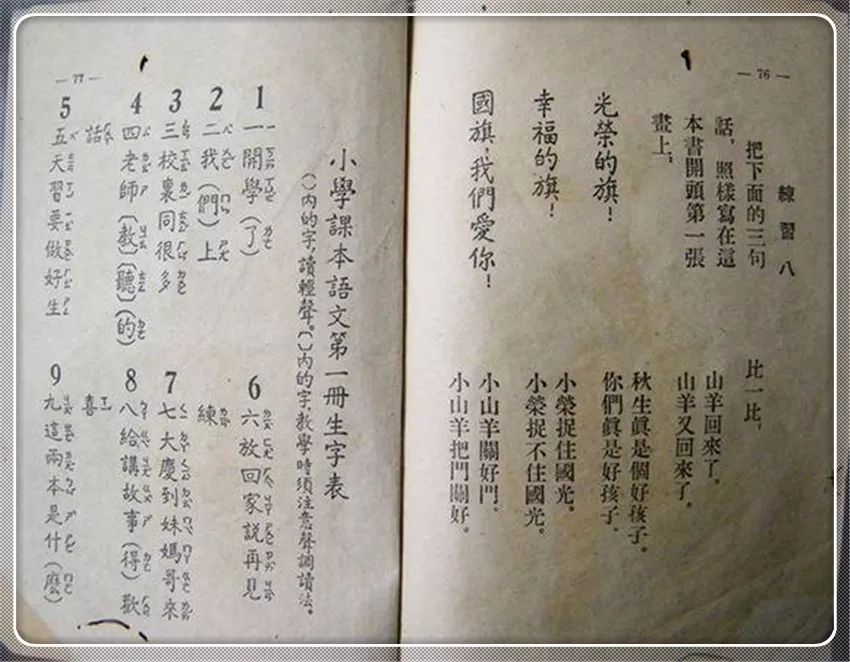 — 76 —
練習八
把下面的三句
話,照樣寫在這
本書開頭第一張
畫上。
光榮的旗!
幸福的旗!
國旗,我們愛你!
比一比。
山羊回來了。
山羊又回來了。
秋生眞是個好孩子。
你們眞是好孩子。
小榮捉住國光。
小榮捉不住國光。
小山羊關好門。
小山羊把門關好。
— 77 —
小學課本語文第一冊生字表
( )內的字,讀輕聲。〔 〕內的字,教學時須注意聲調讀法。
1 一開學(了)
2 二我(們)上
3 三校裏同很多
4 四老師〔教〕〔聽〕(的)
話
5 五天習要做好生
6 六放回家説再見
練
7 七大慶到妹媽哥來
8 八給講故事(得)歡
喜
9 九這兩本是什(麽)